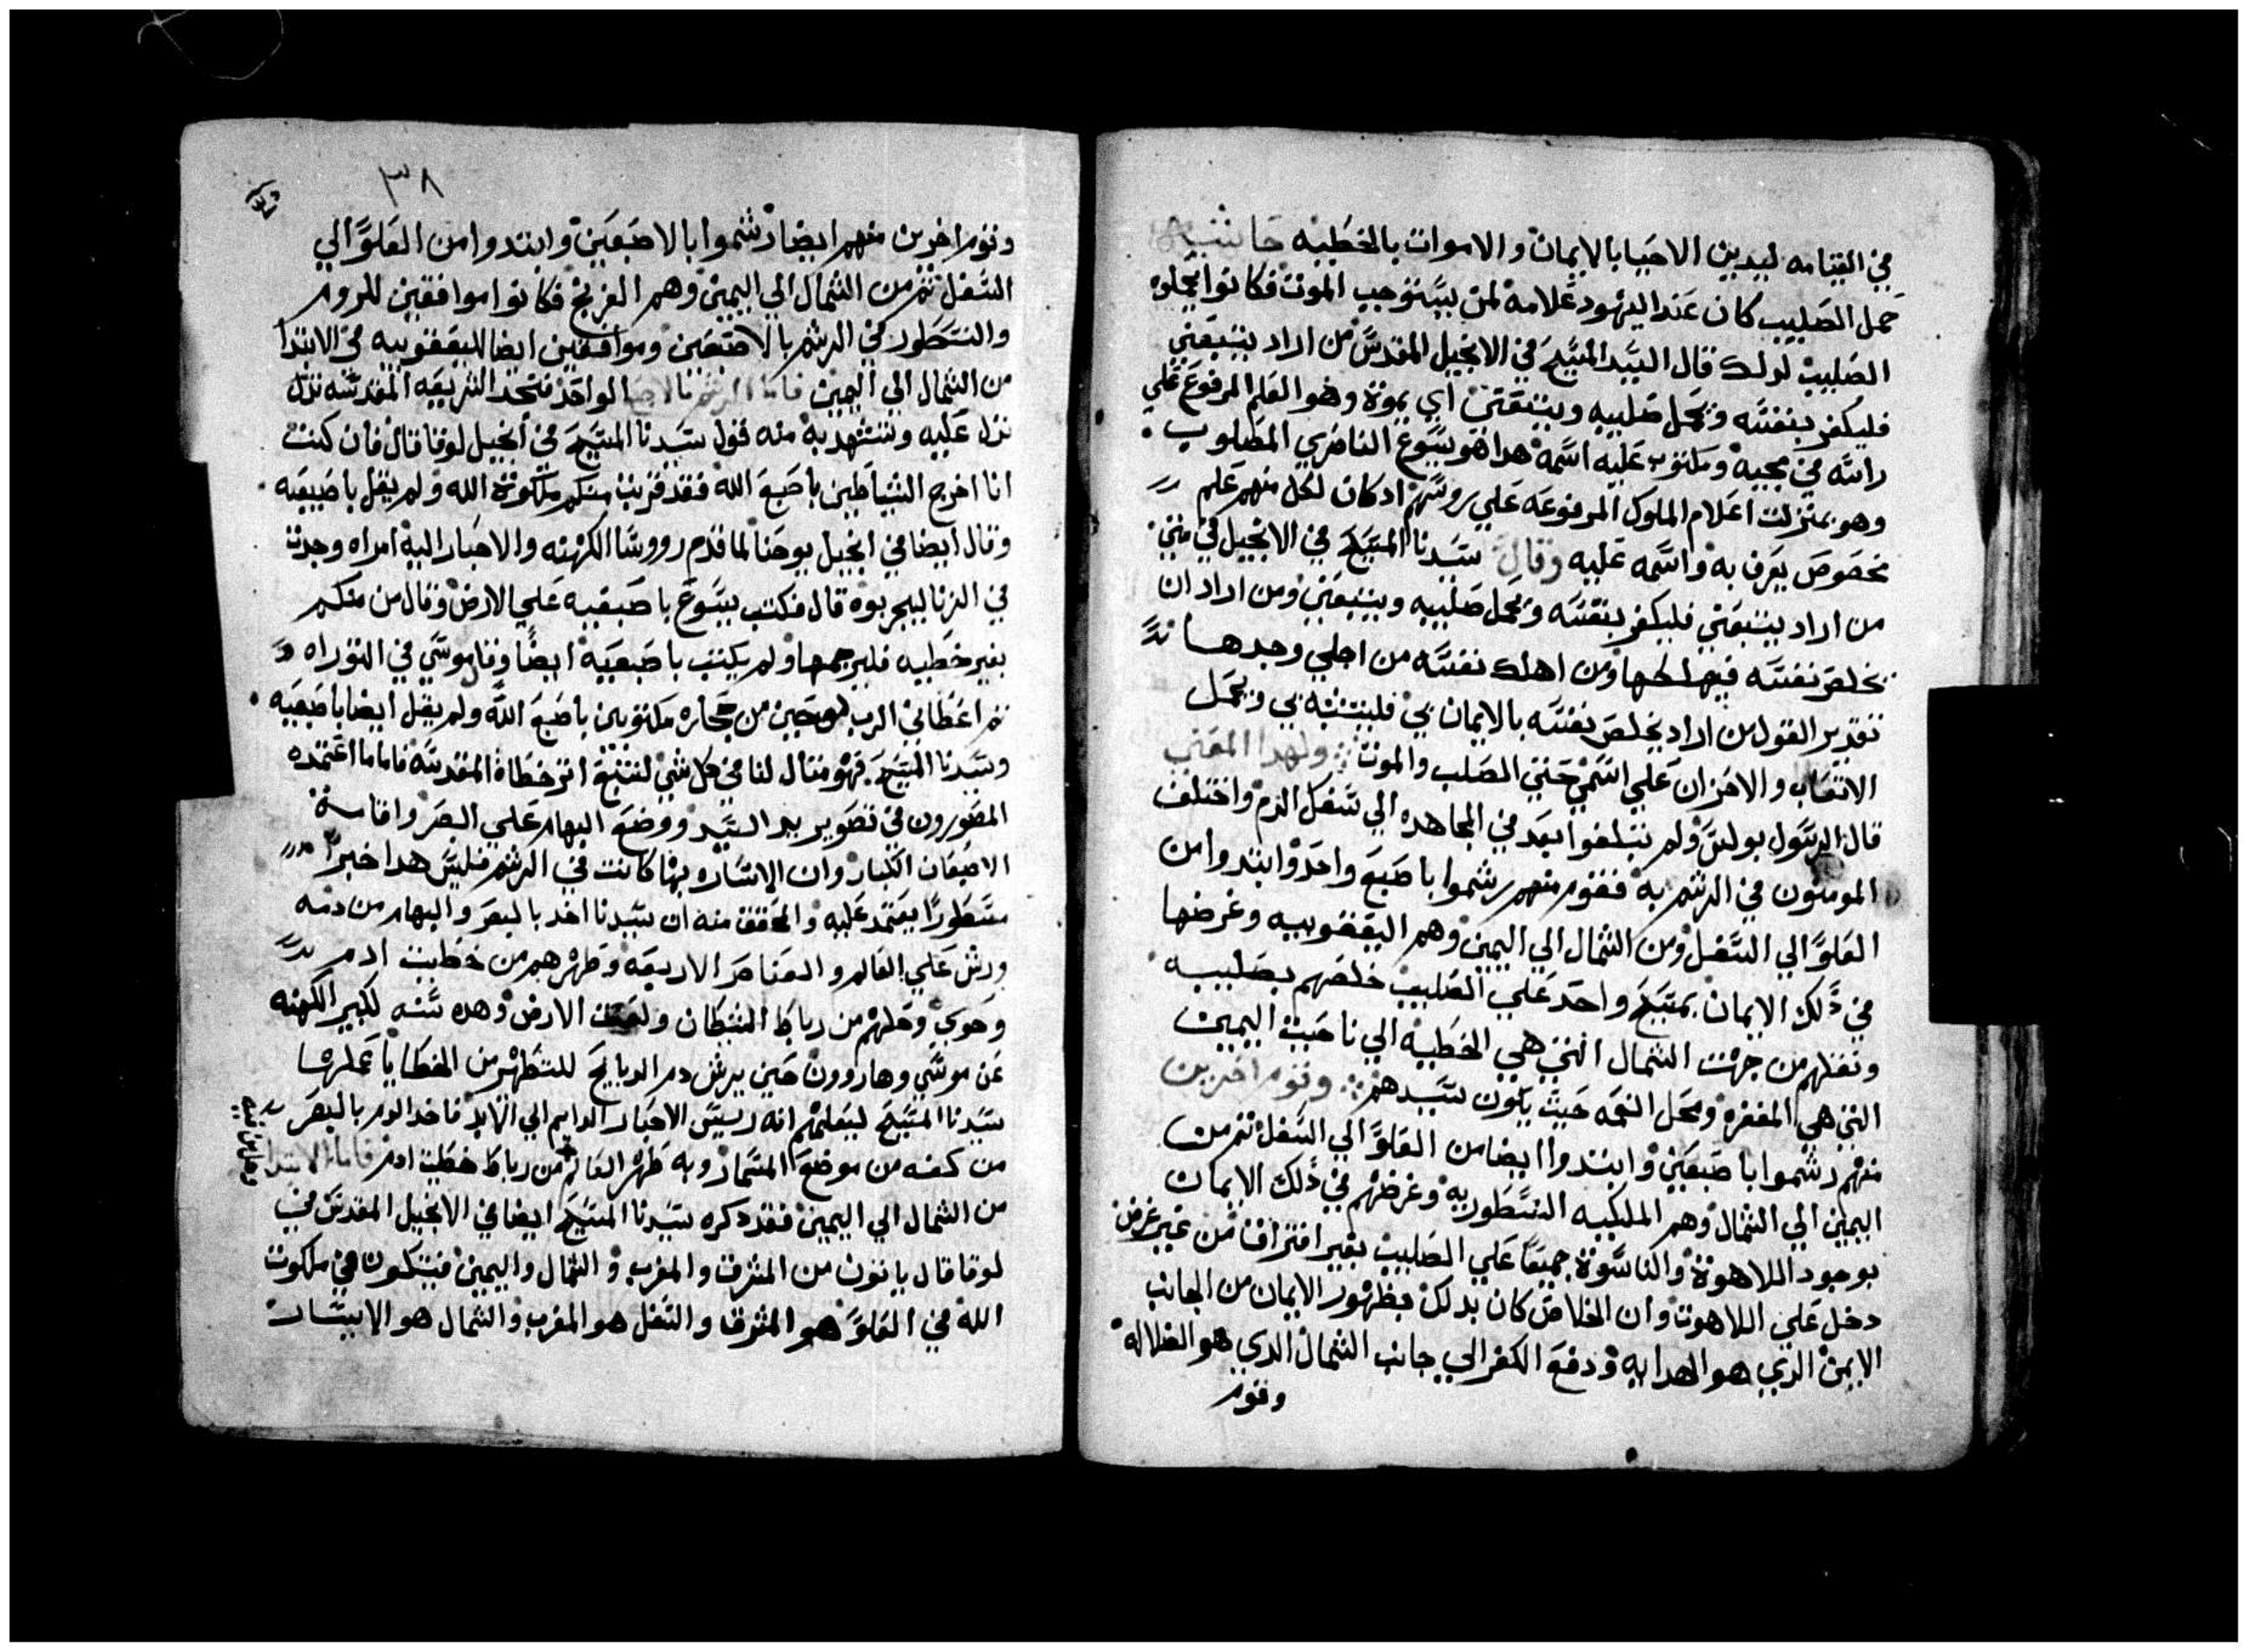 في القيامه ليدين الاحيا بالايمان والاموات بالخطيه
حمل الصليب كان عند اليهود علامة لمن يستوجب الموت فكانوا يحملوه
الصليب لدلك قال السيد المسيح في الانجيل المقدس من اراد يتبعني
فليكفر بنفسه ويحمل صليبه ويتبعني اي بموته وهو العلم المرفوع علي
راسه في مجيه ومكتوب عليه اسمه هدا هو يسوع الناصري المصلوب
وهو بمنزلت اعلام الملوك المرفوعه علي روسهم ادكان لكل منهم علم
مخصوص يعرف به واسمه عليه وقال سيدنا المسيح في الانجيل في متي
من اراد يتبعني فليكفر بنفسه ويحمل صليبه ويتبعني ومن اراد ان
يخلص نفسه فيهلكها ومن اهلك نفسه من اجلي وجدها
تقدير القول من اراد يخلص نفسه بالايمان بي فليتشبه بي ويحمل
الاتعاب والاحزان علي اسمي حتي الصلب والموت ولهدا المعني
قال الرسول بولس ولم تبلغوا بعد في المجاهده الي سفك الدم واختلف
المومنون في الرشم به فقوم منهم رشموا باصبع واحد وابتدوا من
العلو الي السفل ومن الشمال الي اليمين وهم اليعقوبيه وغرضها
في ذلك الايمان بمسيح واحد علي الصليب خلصهم بصليبه
ونقلهم من جهت الشمال التي هي الخطيه الي ناحيت اليمين
التي هي المغفره ومحل النعمه حيث يكون سيدهم وقوم اخرين
منهم رشموا باصبعين وابتدوا ايضا من العلو الي السفل ثم من
اليمين الي الشمال وهم الملكيه النسطوريه وغرضهم في ذلك الايمان
بوجود اللاهوة والناسوة جميعا علي الصليب بغير افتراق من غير عرض
دخل علي اللاهوت وان الخلاص كان بدلك بظهور الايمان من الجانب
الايمن الدي هو الهدايه ودفع الكفر الي جانب الشمال الدي هو الضلاله
وقوم
٣٨
وقوم اخرين منهم ايضا رشموا بالاصبعين وابتدوا من العلو الي
السفل ثم من الشمال الي اليمين وهم الفرنج فكانوا موافقين للروم
والنسطور في الرشم بالاصبعين وموافقين ايضا لليعقوبيه في الابتدا
من الشمال الي اليمين فاما الرشم بالاصبع الواحد فنجد الشريعه المقدسه تدل
تدل عليه وتستشهد به منه قول سيدنا المسيح في انجيل لوقا قال فان كنت
انا اخرج الشياطين باصبع الله فقد قربت منكم ملكوة الله ولم يقل باصبعيه
وقال ايضا في انجيل يوحنا لما قدم رووسا الكهنه والاحبار اليه امراه وجدت
في الزنا ليجربوه قال فكتب يسوع باصبعه علي الارض وقال من منكم
بغير خطيه فليرجمها ولم يكتب باصبعيه ايضا وقال موسي في التوراه
ثم اعطاني الرب لوحين من حجاره مكتوبين باصبع الله ولم يقل ايضا باصبعيه
وسيدنا المسيح فهو مثال لنا في كل شي لنتبع اثر خطاة المقدسه فاما ما اعتمده
المصورون في تصوير يد السيد ووضع البهام علي البصر واقامة
الاصبعان الكبار وان الاشاره بها كانت في الرشم فليس هدا خبرا
مسطورا يعتمد عليه والمحقق منه ان سيدنا اخد بالبصر والبهام من دمه
ورش علي العالم والعناصر الاربعه وطهرهم من خطيت ادم
وحوي وحلهم من رباط الشيطان ولعنت الارض وهده سنه لكبير الكهنه
عن موسي وهارون حين يرش دم الدبايح للتطهر من الخطايا عملها
سيدنا المسيح ليعلمهم انه رييس الاحبار الدايم الي الابد فاخد الدم بالبصر
من كفه من موضع المسمار وبه طهر العالم من رباط خطيت ادم فاما الابتدا
من الشمال الي اليمين فقد دكره سيدنا المسيح ايضا في الانجيل المقدس في
لوقا قال ياتون من المشرق والمغرب والشمال واليمين فيتكون في ملكوت
الله في العلو هو المشرق والسفل هو المغرب والشمال هو الايسار